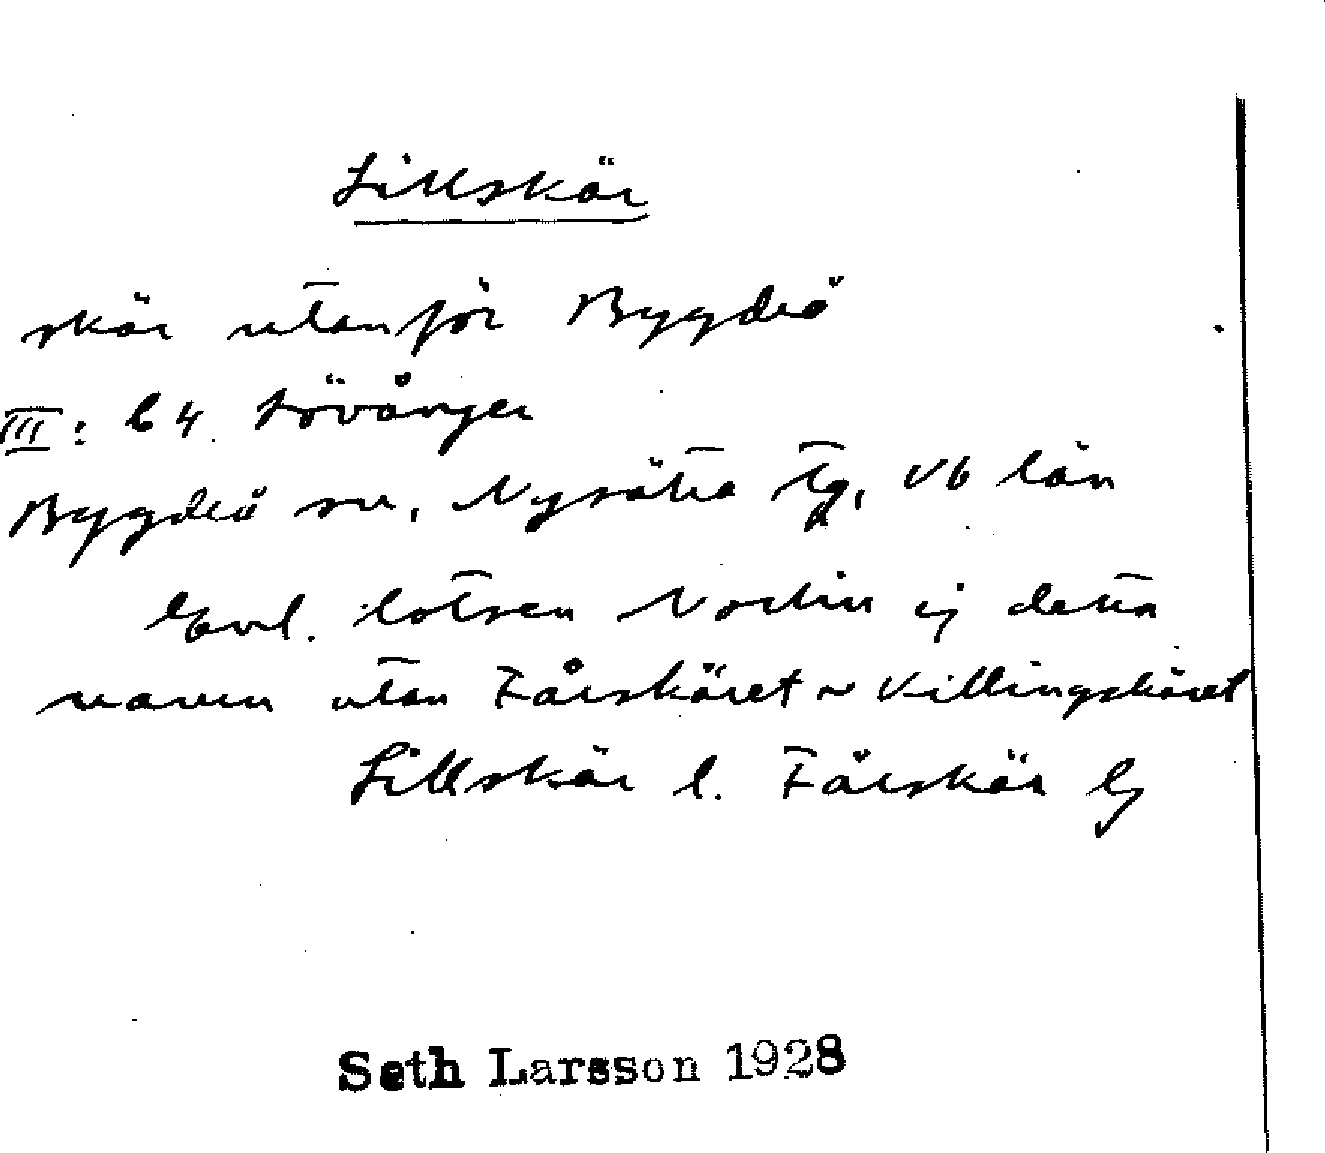 Lillskär
skär utanför Bygdeå
III: 64 Lövånger
Bygdeå sn, Nysätra tg, Vb län
Enl. lotsen Nordin ej detta
namn utan Fårskäret ~ Killingskäret
Lillskär l. Fårskär
Seth Larsson 1928